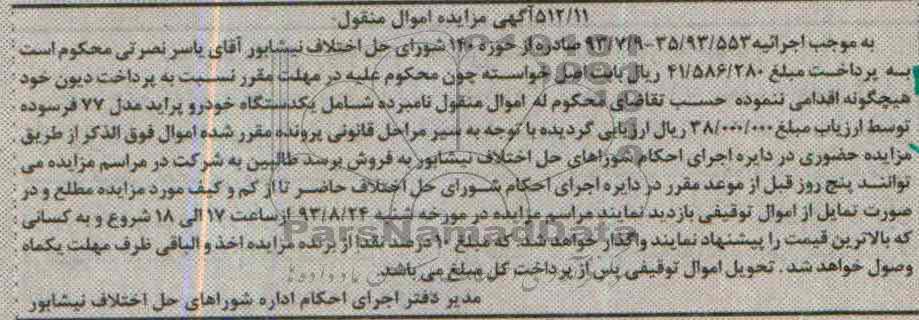 ۵۱۲/۱۱آگهی مزایده اموال منقول
به موجب اجرائیه ۳۵/۹۳/۵۵۳-۹۳/۷/۹ صادره از حوزه ۱۴۰ شورای حل اختلاف نیشابور آقای یاسر نصرتی محکوم است
به پرداخت مبلغ ۴۱/۵۸۶/۲۸۰ ریال بابت اصل خواسته چون محکوم علیه در مهلت مقرر نسبت به پرداخت دیون خود
هیچگونه اقدامی ننموده حسب تقاضای محکوم له اموال منقول نامبرده شامل یکدستگاه خودرو پراید مدل ۷۷ فرسوده
توسط ارزیاب مبلغ ۳۸/۰۰۰/۰۰۰ ریال ارزیابی گردیده با توجه به سیر مراحل قانونی پرونده مقرر شده اموال فوق الذکر از طریق
مزایده حضوری در دایره اجرای احکام شوراهای حل اختلاف نیشابور به فروش برسد طالبین به شرکت در مراسم مزایده می
توانند پنج روز قبل از موعد مقرر در دایره اجرای احکام شورای حل اختلاف حاضر تا از کم و کیف مورد مزایده مطلع و در
صورت تمایل از اموال توقیفی بازدید نمایند مراسم مزایده در مورخه شنبه ۹۳/۸/۲۴ از ساعت ۱۷ الی ۱۸ شروع و به کسانی
که بالاترین قیمت را پیشنهاد نمایند واگذار خواهد شد. که مبلغ ۱۰ درصد نقدا از برنده مزایده اخذ و الباقی ظرف مهلت یکماه
وصول خواهد شد . تحویل اموال توقیفی پس از پرداخت کل مبلغ می باشد.
مدیر دفتر اجرای احکام اداره شوراهای حل اختلاف نیشابور
ParsNamadData